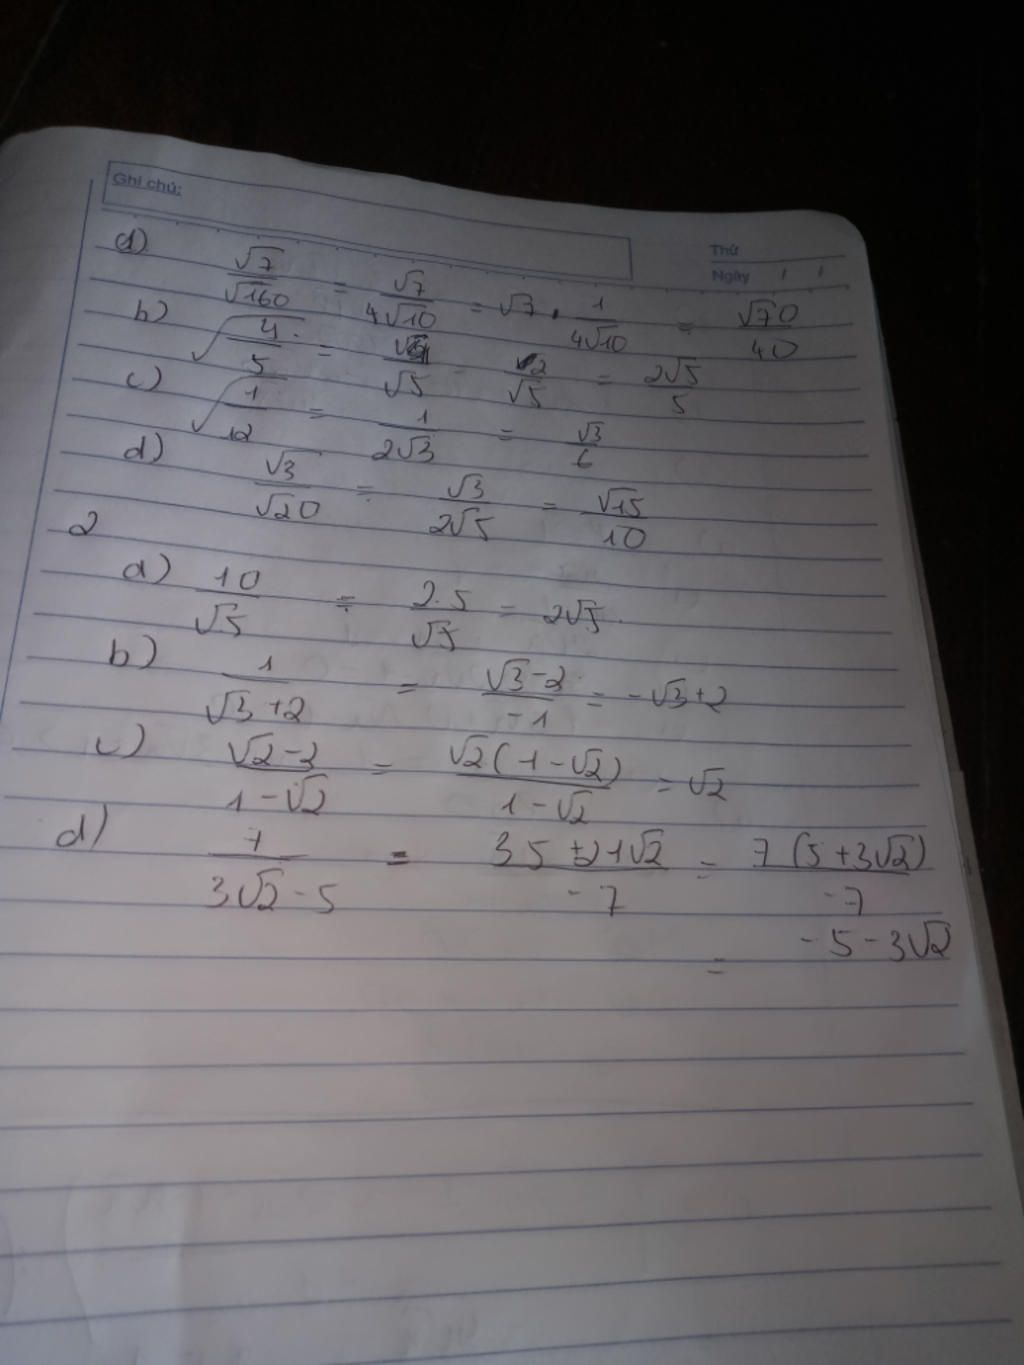 Ghi chú:
Thứ
Ngày / /
a) √7/√160 = √7/4√10 = √7 . 1/4√10 = √70/40
b) √(4/5) = /√5 = 2/√5 = 2√5/5
c) √(1/12) = 1/2√3 = √3/6
d) √3/√20 = √3/2√5 = √15/10
2
a) 10/√5 = 2.5/√5 = 2√5.
b) 1/(√3+2) = (√3-2)/-1 = -√3+2
c) (√2-2)/(1-√2) = √2(1-√2)/(1-√2) = √2
d) 7/(3√2-5) = (35+21√2)/-7 = 7(5+3√2)/-7
= -5-3√2